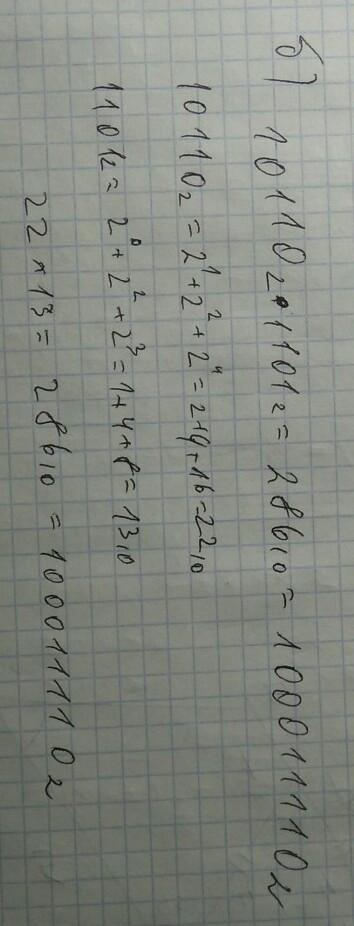 б) 10110₂·1101₂ = 286₁₀ = 100011110₂
10110₂ = 2¹ + 2² + 2⁴ = 2+4+16=22₁₀
1101₂ = 2⁰ + 2² + 2³ = 1+4+8=13₁₀
22 · 13 = 286₁₀ = 100011110₂